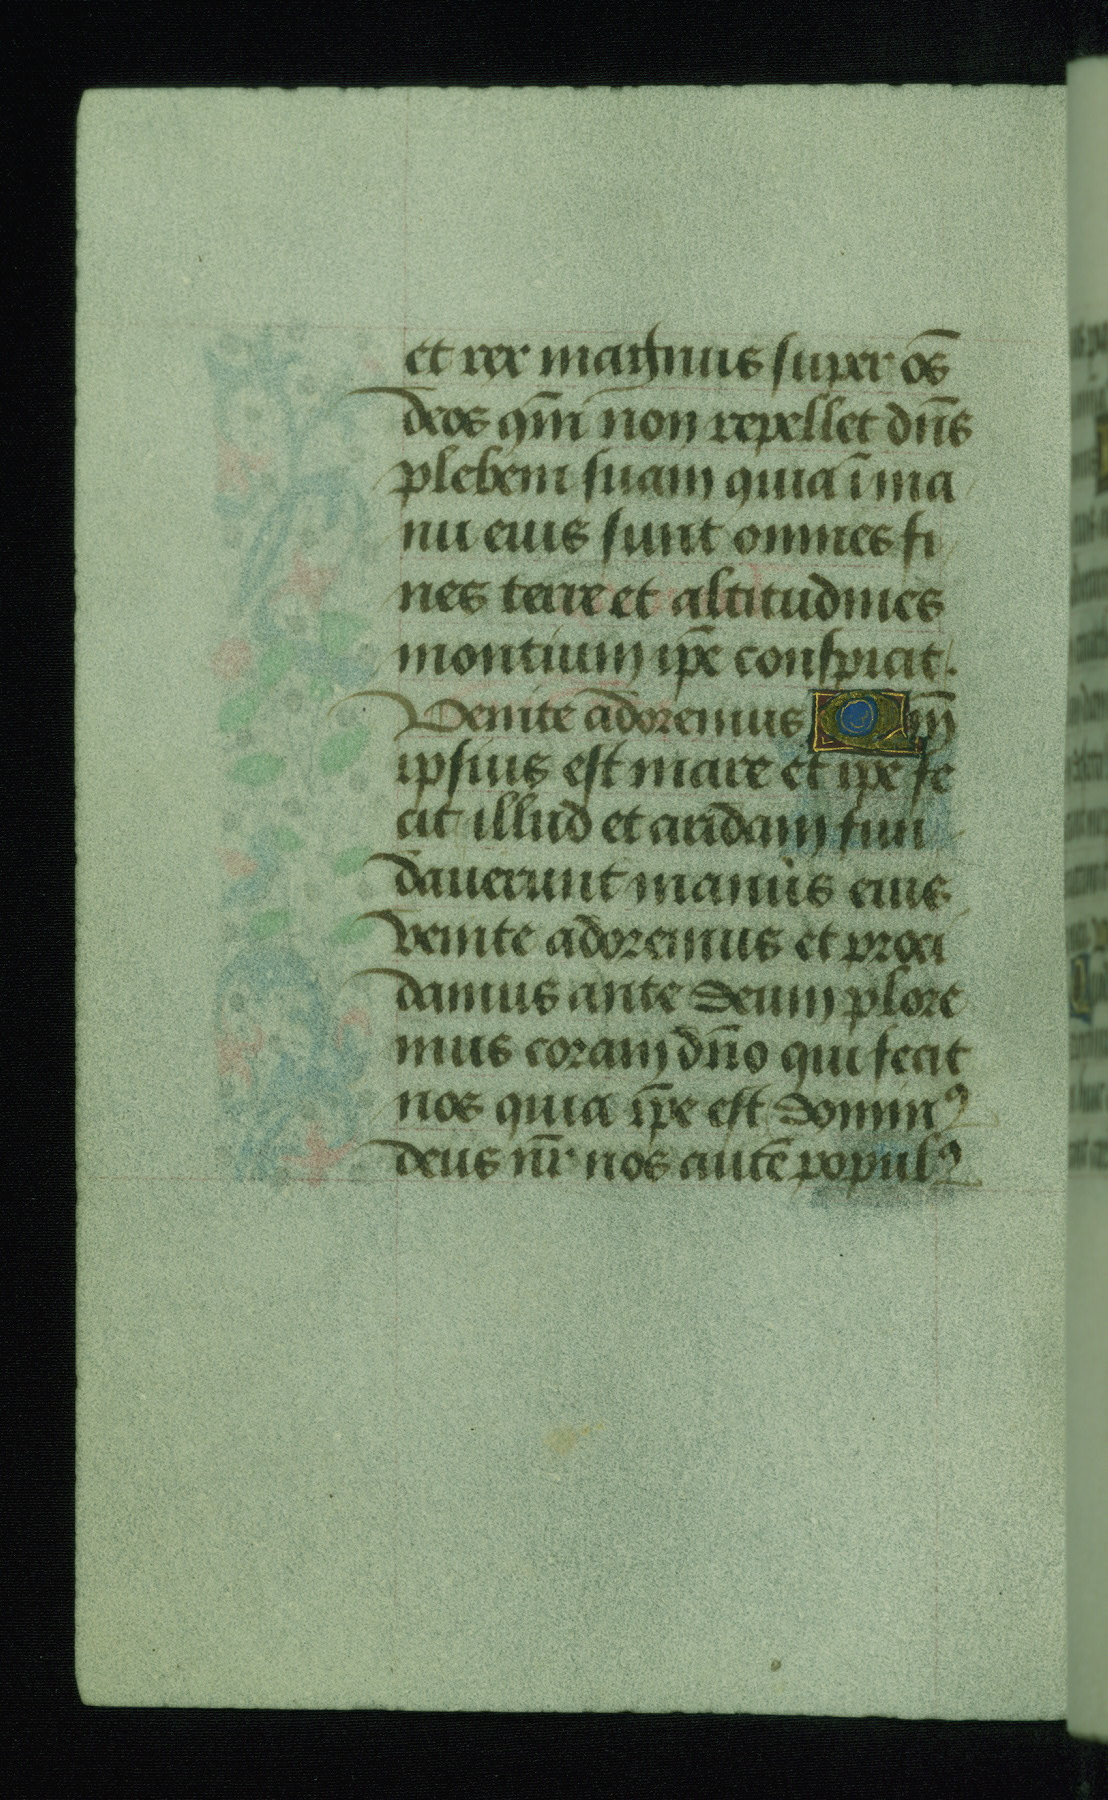 et rex magnus super oēs
deos qm̄ non repellet dn̄s
plebem suam quia ī ma
nu eius sunt omnes fi
nes terre et altitudines
montium ip̄e conspicit.
Venite adoremus Qm̄
ipsius est mare et ipe fe
cit illud et aridam fun
dauerunt manus eius
venite adoremus et proci
damus ante deum plore
mus coram dn̄o qui fecit
nos quia ip̄e est dominꝰ
deus nr̄ nos autē populꝰ